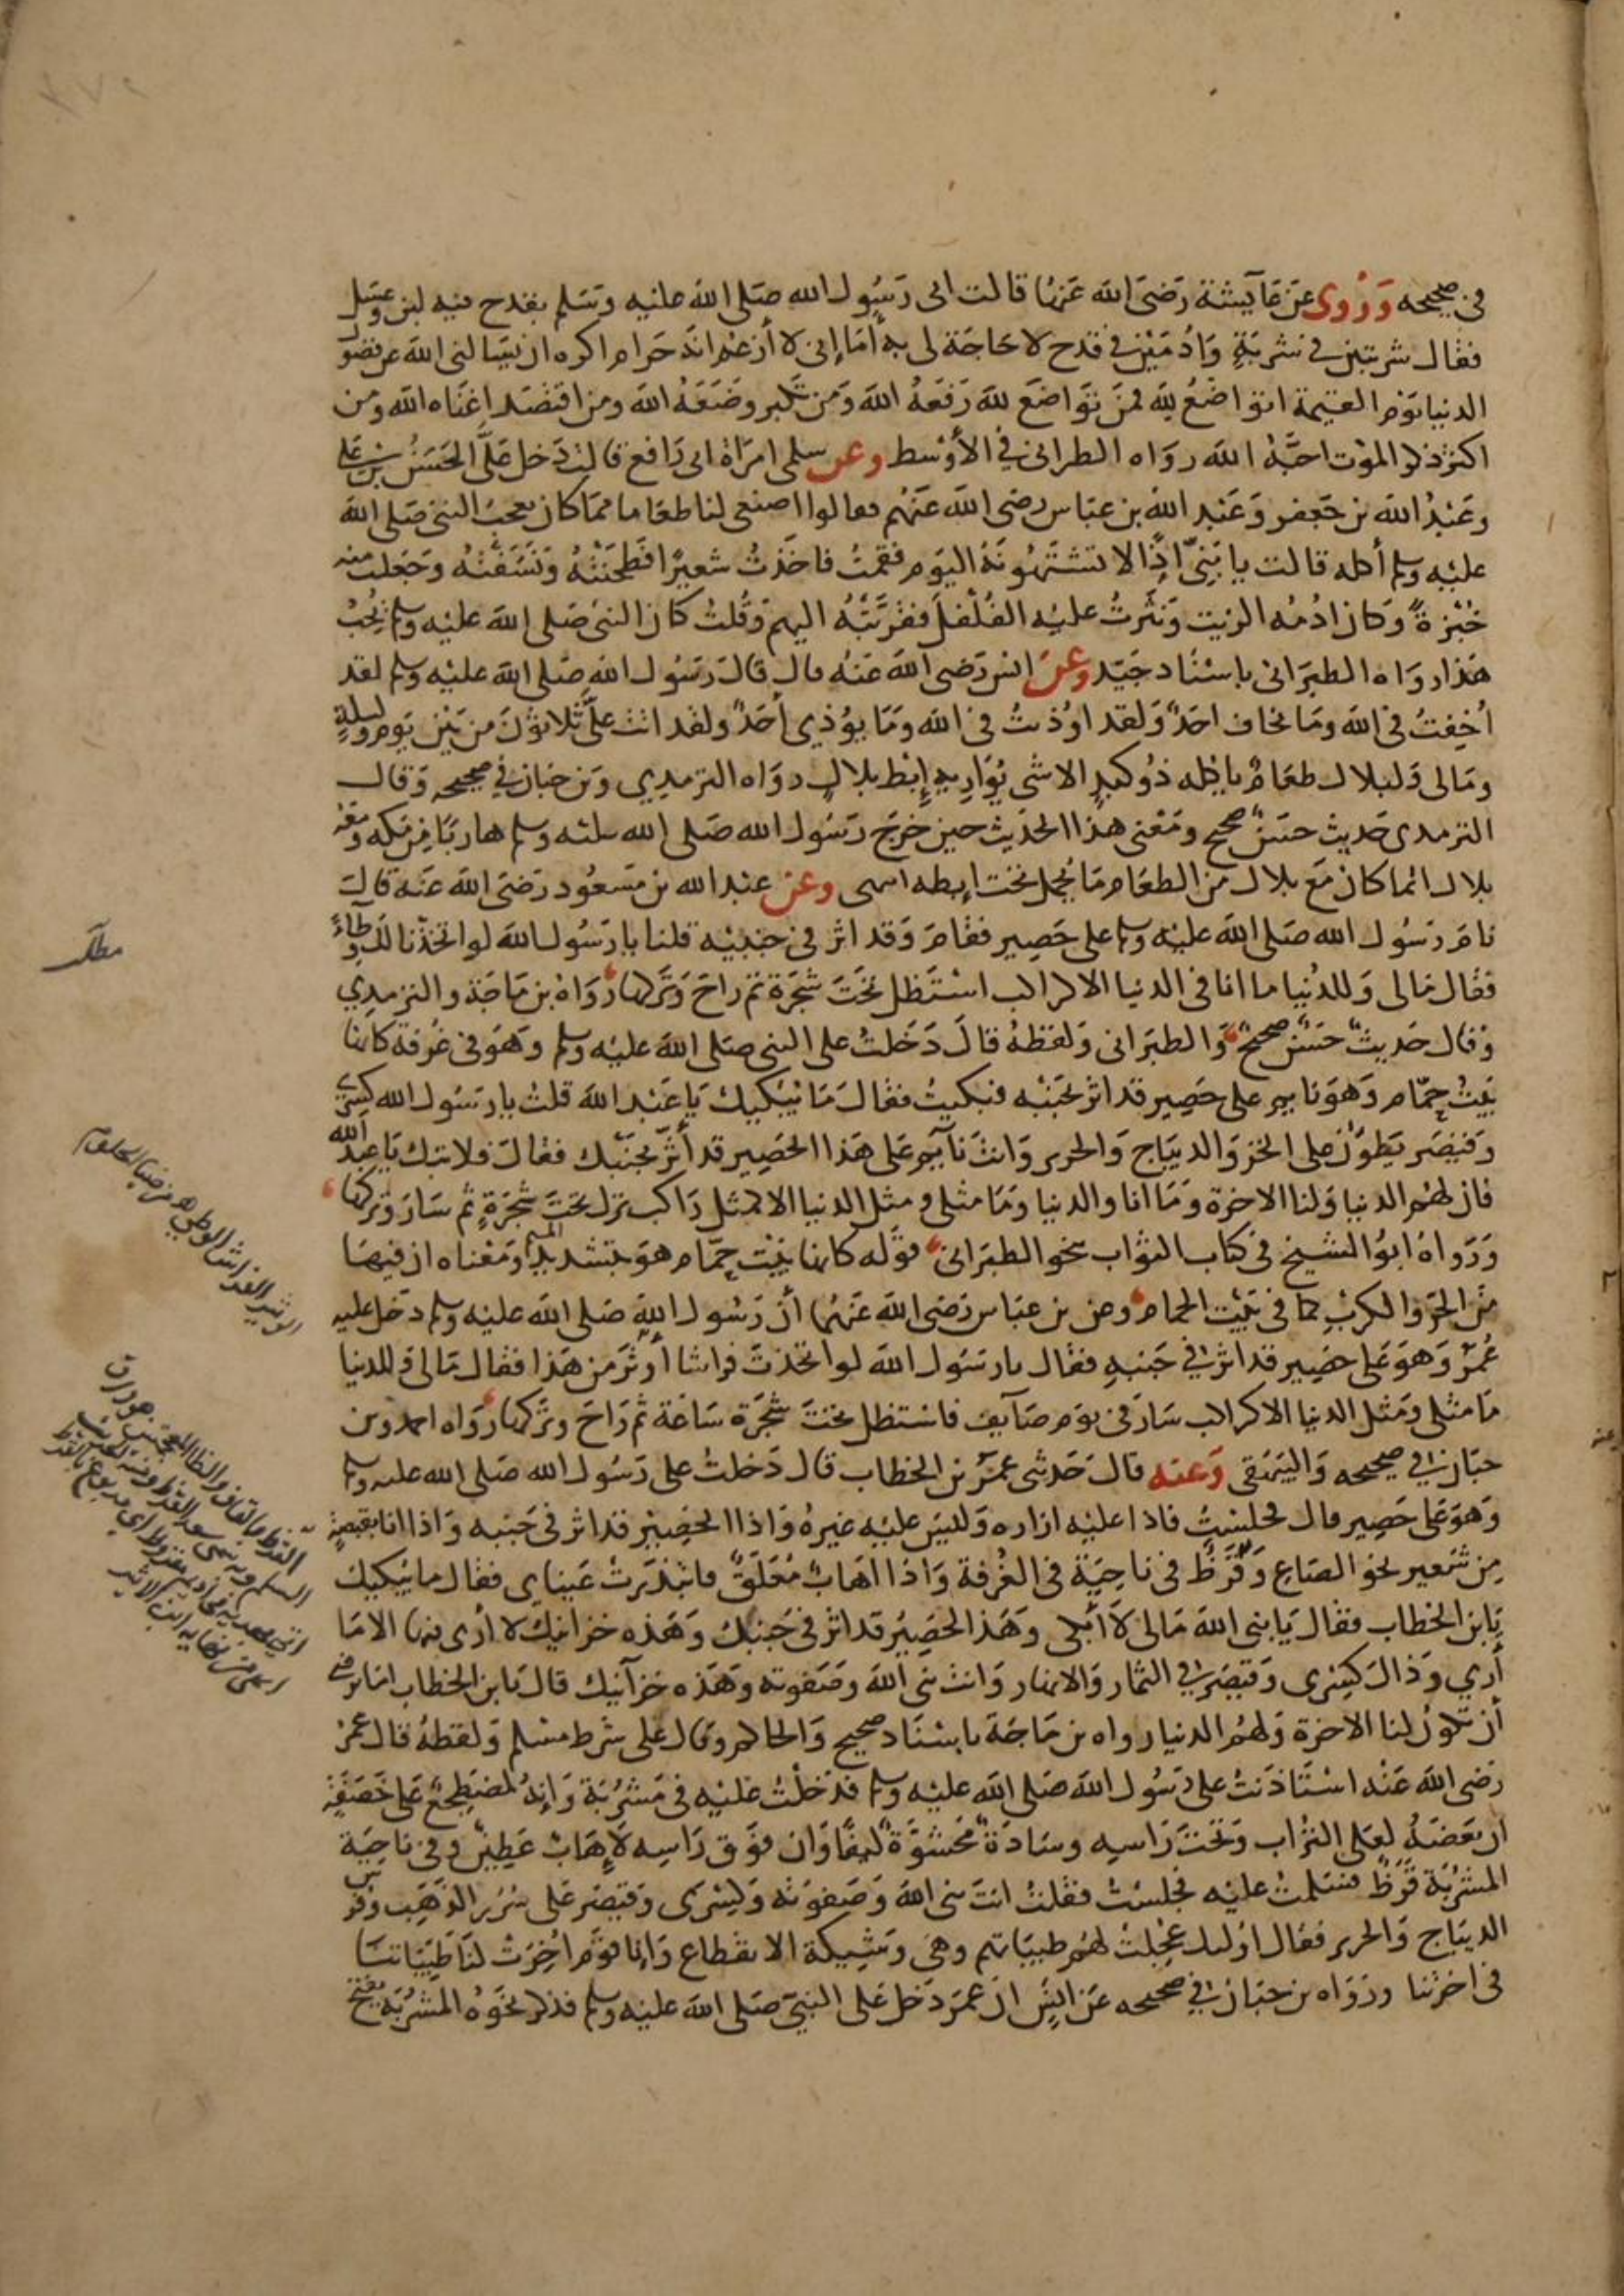 في صحيحه وَرُوى عَن عَايشة رَضىَ الله عَنها قالت اتى رَسُول الله صَلى الله عليه وسَلم بقدح فيه لبن وعسَل
فقال شربتين في شربَةٍ وَادُمَيْن في قدح لا حَاجَة لى به أمَا إنى لا أزعم انهَ حَرام اكره ان يسَالنى الله عن فضول
الدنيا يَوم القيمة اتواضَعُ لِله فمن تَوَاضَعَ لله رَفَعَهُ الله وَمَن تكبر وضَعَهُ الله ومن اقتصَد اغنَاه الله ومن
اكثر ذكر الموْت احَبَّهُ الله رَوَاه الطبرانى في الأوْسط وعن سلمى امرَاة ابى رَافع قالت دَخل علىَّ الحَسَنُ بن على
وعَبْدُ الله بن جَعفر وَعَبْد الله بن عبَاس رضى الله عَنهُم فقالوا اصنعى لنا طعَاما ممَا كان يعجبُ النبىَ صَلى الله
عليْه وسلم أكله قالت يا بَنِىَّ اِذًا لا تشتهُونَهُ اليَوم فقمتُ فاخَذتُ شَعيرًا فطحَنتْهُ وَنسَفْتُه وجَعلت منه
خُبْزةً وَكان ادُمُه الزيت وَنثرتُ عليْه الفُلْفلَ فقرَّبَتْهُ اليهم وَقلتُ كان النبى صَلى الله عليْه وسلم يُحبُ
هَذا رَوَاه الطبَرَانى باسْنَاد جَيّد وعن انس رَضى الله عَنْه قال قالَ رَسُول الله صَلى الله عليْه وسلم لقد
اُخِفتُ فى الله ومَا يخاف احَدٌ وَلقد اوُذيتُ فى الله وَمَا يوُذي أحَدٌ ولقد اتت علىَّ ثلاثوُنَ من بَيْن يَوم وليلةٍ
ومَالى وَلبلال طعَامٌ ياكله ذوُ كبدٍ الا شى يُوَارِيهِ إِبْط بلالٍ روَاه الترمذي وَبن حبَان في صحيحه وَقال
الترمذى حَديث حسَنٌ صحيح ومَعْنى هذا الحَديث حين خرَجَ رَسُول الله صَلى الله عليه وسلم هاربًا مِن مَكة ومَعَه
بلال انما كان مَع بلال من الطعَام مَا يُحمل تحت اِبطه انتهى وعن عبْد الله بن مسَعُود رَضىَ الله عَنه قال
نامَ رَسُول الله صَلى الله عليْه وسلم على حَصِير فقامَ وَقد اثر فى جنبيْه قلنا يا رَسُول الله لو اتخذْنا لك وطاءً
فقال مَالى وَللدُنيا ما انا فى الدنيا الا كراكب اسْتَظل تحتَ شجَرَة ثم رَاحَ وَتركهَا رَوَاهُ بن مَاجَة والترمذي
وَقال حَديثٌ حَسَنٌ صحيحٌ وَالطبَرانى وَلفظهُ قالَ دَخَلتُ على النبى صَلى الله عليْه وسلم وهَوَ فى غرُفة كانها
بَيْتُ حمّام وَهوَ نايم على حَصِير قد اثر بجَنْبه فبكيتُ فقالَ مَا يُبْكيكَ يَا عَبْد الله قلتُ يا رَسُول الله كِسْرَى
وقيْصَر يَطوُّن على الخز وَالديبَاج وَالحرير وَانتَ نَآيمٌ عَلى هَذا الحَصِير قد أثَّر بجنْبك فقالَ فلا تبك يَا عبد الله
فان لهُم الدنيا وَلنا الاخرة وَمَا انا والدنيا وَمَا مثلى ومثل الدنيا الا كمثل رَاكب نزل تحَتَ شجَرَةٍ ثم سَارَ وَتركها
وَرَوَاهُ ابوُ الشيخ فى كتاب الثوَاب نحو الطبَرَانى قوَله كانها بَيْت حمَّام هوَ بتشديد الميم ومَعْناه ان فيهَا
مَن الحَرّ وَالكربِ كما فى بَيْت الحمام وعن بن عبَاس رَضى الله عَنهُما أنّ رَسُول الله صَلى الله عليْه وسلم دَخل عليه
عُمَرُ وَهوَ عَلى حَصِير قد اثر في جَنبهِ فقال يا رسَوُل الله لو اتخذتَ فرَاشا أَوثَرَ من هَذا فقال مَالى وَللدنيا
مَا مثلى ومَثل الدنيا الا كراكب سَارَ فى يوَم صَايف فاستظل تحتَ شجَرَة سَاعَة ثم رَاحَ وترَكها رَوَاه احمد وبن
حبَان في صحيحه وَالبَيهَقى وَعنه قالَ حَدثنى عمَرُ بن الخطاب قال دَخلتُ على رَسُول الله صَلى الله عليه وسلم
وَهوَ عَلى حَصِير قال فجلسَتُ فاذا عليْه ازاره وَليسَ عليْه غيرهُ وَاذا الحَصِيرُ قد اثر فى جَنبه وَاذا انا بقبضةٍ
مِن شَعير نحو الصَاع وَقَرَظٌ فى ناحيَة فى الغُرفة وَاذا اهَابٌ مُعَلَقٌ فابْتدَرَتْ عَيناى فقال ما يُبْكيكَ
يَا بن الخطاب فقال يَا نبى الله مَالى لاَ أبكى وَهَذا الحَصِيرُ قد اثر فى جَنبكَ وَهَذه خزَانتك لا أرُى فيها الا مَا
أرَي وَذاك كِسْرى وَقيْصَر في الثمار وَالانهار وَانتَ نبى الله وصَفوته وَهَذه خزآنتك قال يَا بن الخطاب امَا ترضى
أن تكوُنَ لنا الاخرة وَلهُمُ الدنيا رواه بن مَاجَة باسْنَاد صحيح وَالحاكم وقال على شرَط مسْلم وَلفظهُ قال عمَرُ
رَضى الله عَنْه اسْتَاذَنتُ على رَسُول الله صَلى الله عليْه وسلم فدَخلتُ عَليْه فى مَشرُبَة وَإنهُ لمضطجعٌ عَلى خَصَفَةٍ
ان بَعضَهُ لعَلى الترُاب وَتحتَ رَاسِه وسَادَةٌ مَحشوَّةٌ ليفًا وَان فوَق رَاسِه لإِهَابٌ عَطِينٌ وفى ناحِيَة
المشرُبَة قَرَظٌ فسَلمتُ عليْه فجلسَتُ فقلتُ انتَ نبى الله وَصَفوَته وَكِسْرَى وَقيْصَر عَلى سُرُر الذهَب وفرش
الديبَاج وَالحرير فقال اوُليك عُجلتْ لهُم طيبَاتهم وهَى وشِيكة الانقطاع وَإنا قوَم أخِرَتْ لنَا طَيّبَاتنَا
فى اخرتنا ورَوَاه بن حبَان في صحيحه عَن انسٍ ان عمَرَ دَخل عَلى النبىّ صَلى الله عليْه وسلم فذكر نحَوهُ المشرُبَة بفتح
مطلب
الوثير الفراش الوطئ